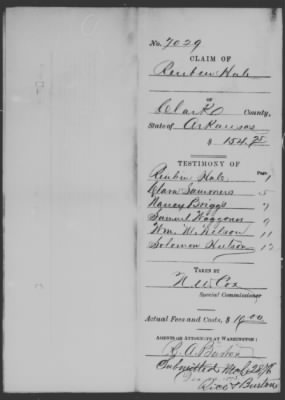 No. 7029
CLAIM OF
Reuben Hale
OF
Clark County,
State of Arkansas
$ 154.75
TESTIMONY OF
Page.
Reuben Hale 1
Clara Sammers 5
Nancy Briggs 7
Samuel Waggoner 9
Wm. W. Wilson 11
Solomon Hutson 12
TAKEN BY
N. W. Cox
Special Commissioner
Actual Fees and Costs, $ 10.00
AGENTS OR ATTORNEYS AT WASHINGTON:
G. A. Burton
Submitted
Rice & Burton